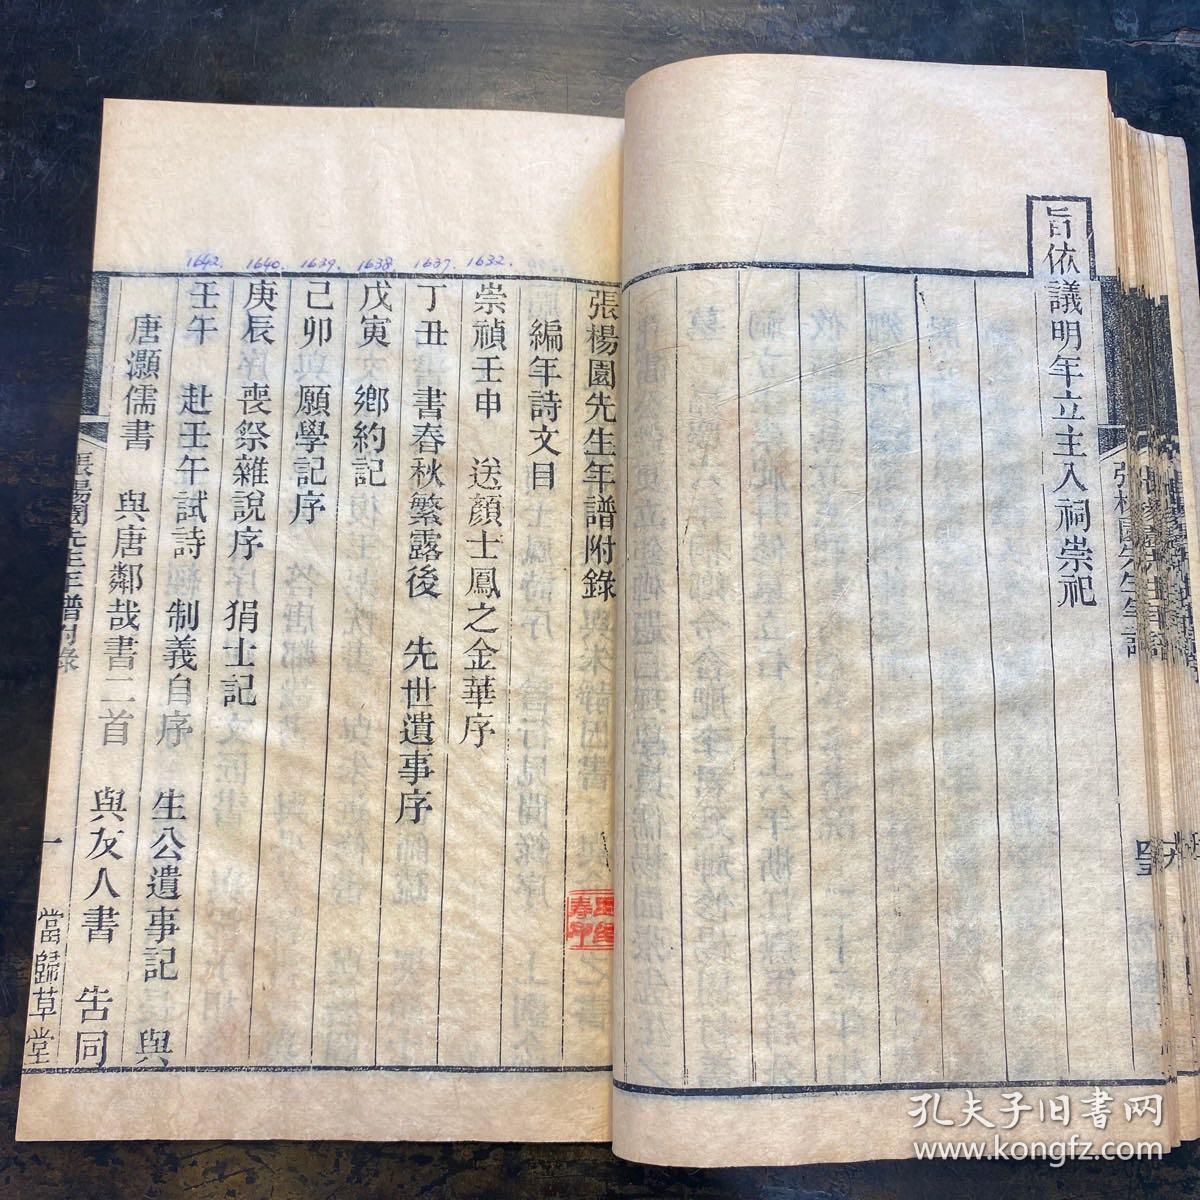 旨依議明年立主入祠崇祀
張楊園先生年譜附錄
編年詩文目
1632.
崇禎壬申　送顏士鳳之金華序
1637.
丁丑　書春秋繁露後　先世遺事序
1638
戊寅　鄉約記
1639.
己卯　願學記序
1640.
庚辰　喪祭雜說序　狷士記
1642.
壬午　赴壬午試詩　制義自序　生公遺事記　與
唐灝儒書　與唐鄰哉書二首　與友人書　告同
張楊園先生年譜附錄
一
當歸草堂
孔夫子旧书网
www.kongfz.com